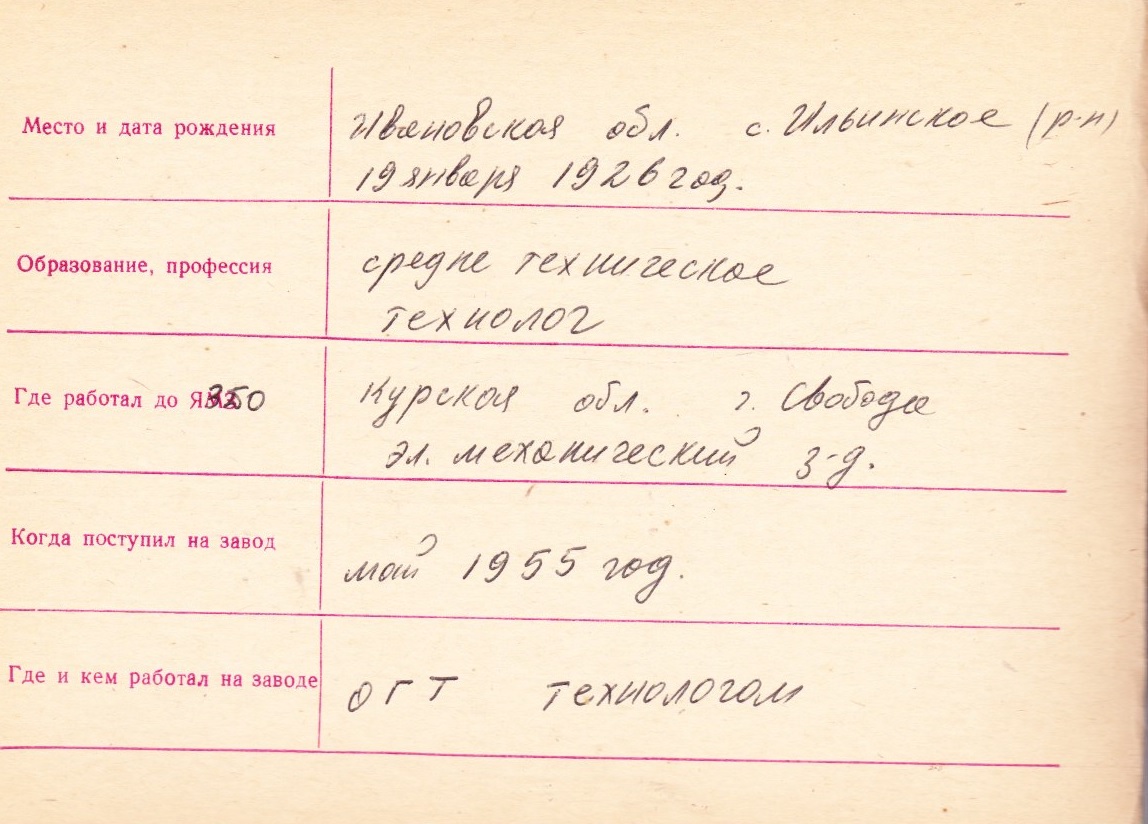 Место и дата рождения
Ивановская обл. с. Ильинское (р-н)
19 января 1926 год.
Образование, профессия
средне техническое
технолог
Где работал до ЯЭЗО
Курская обл. г. Свобода
эл. механический з-д.
Когда поступил на завод
май 1955 год.
Где и кем работал на заводе
ОГТ технологом